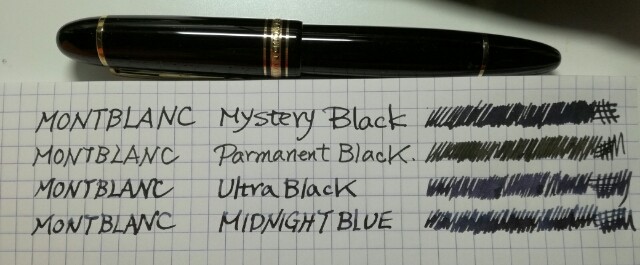 MONTBLANC Mystery Black
MONTBLANC Parmanent Black.
MONTBLANC Ultra Black
MONTBLANC MIDNIGHT BLUE